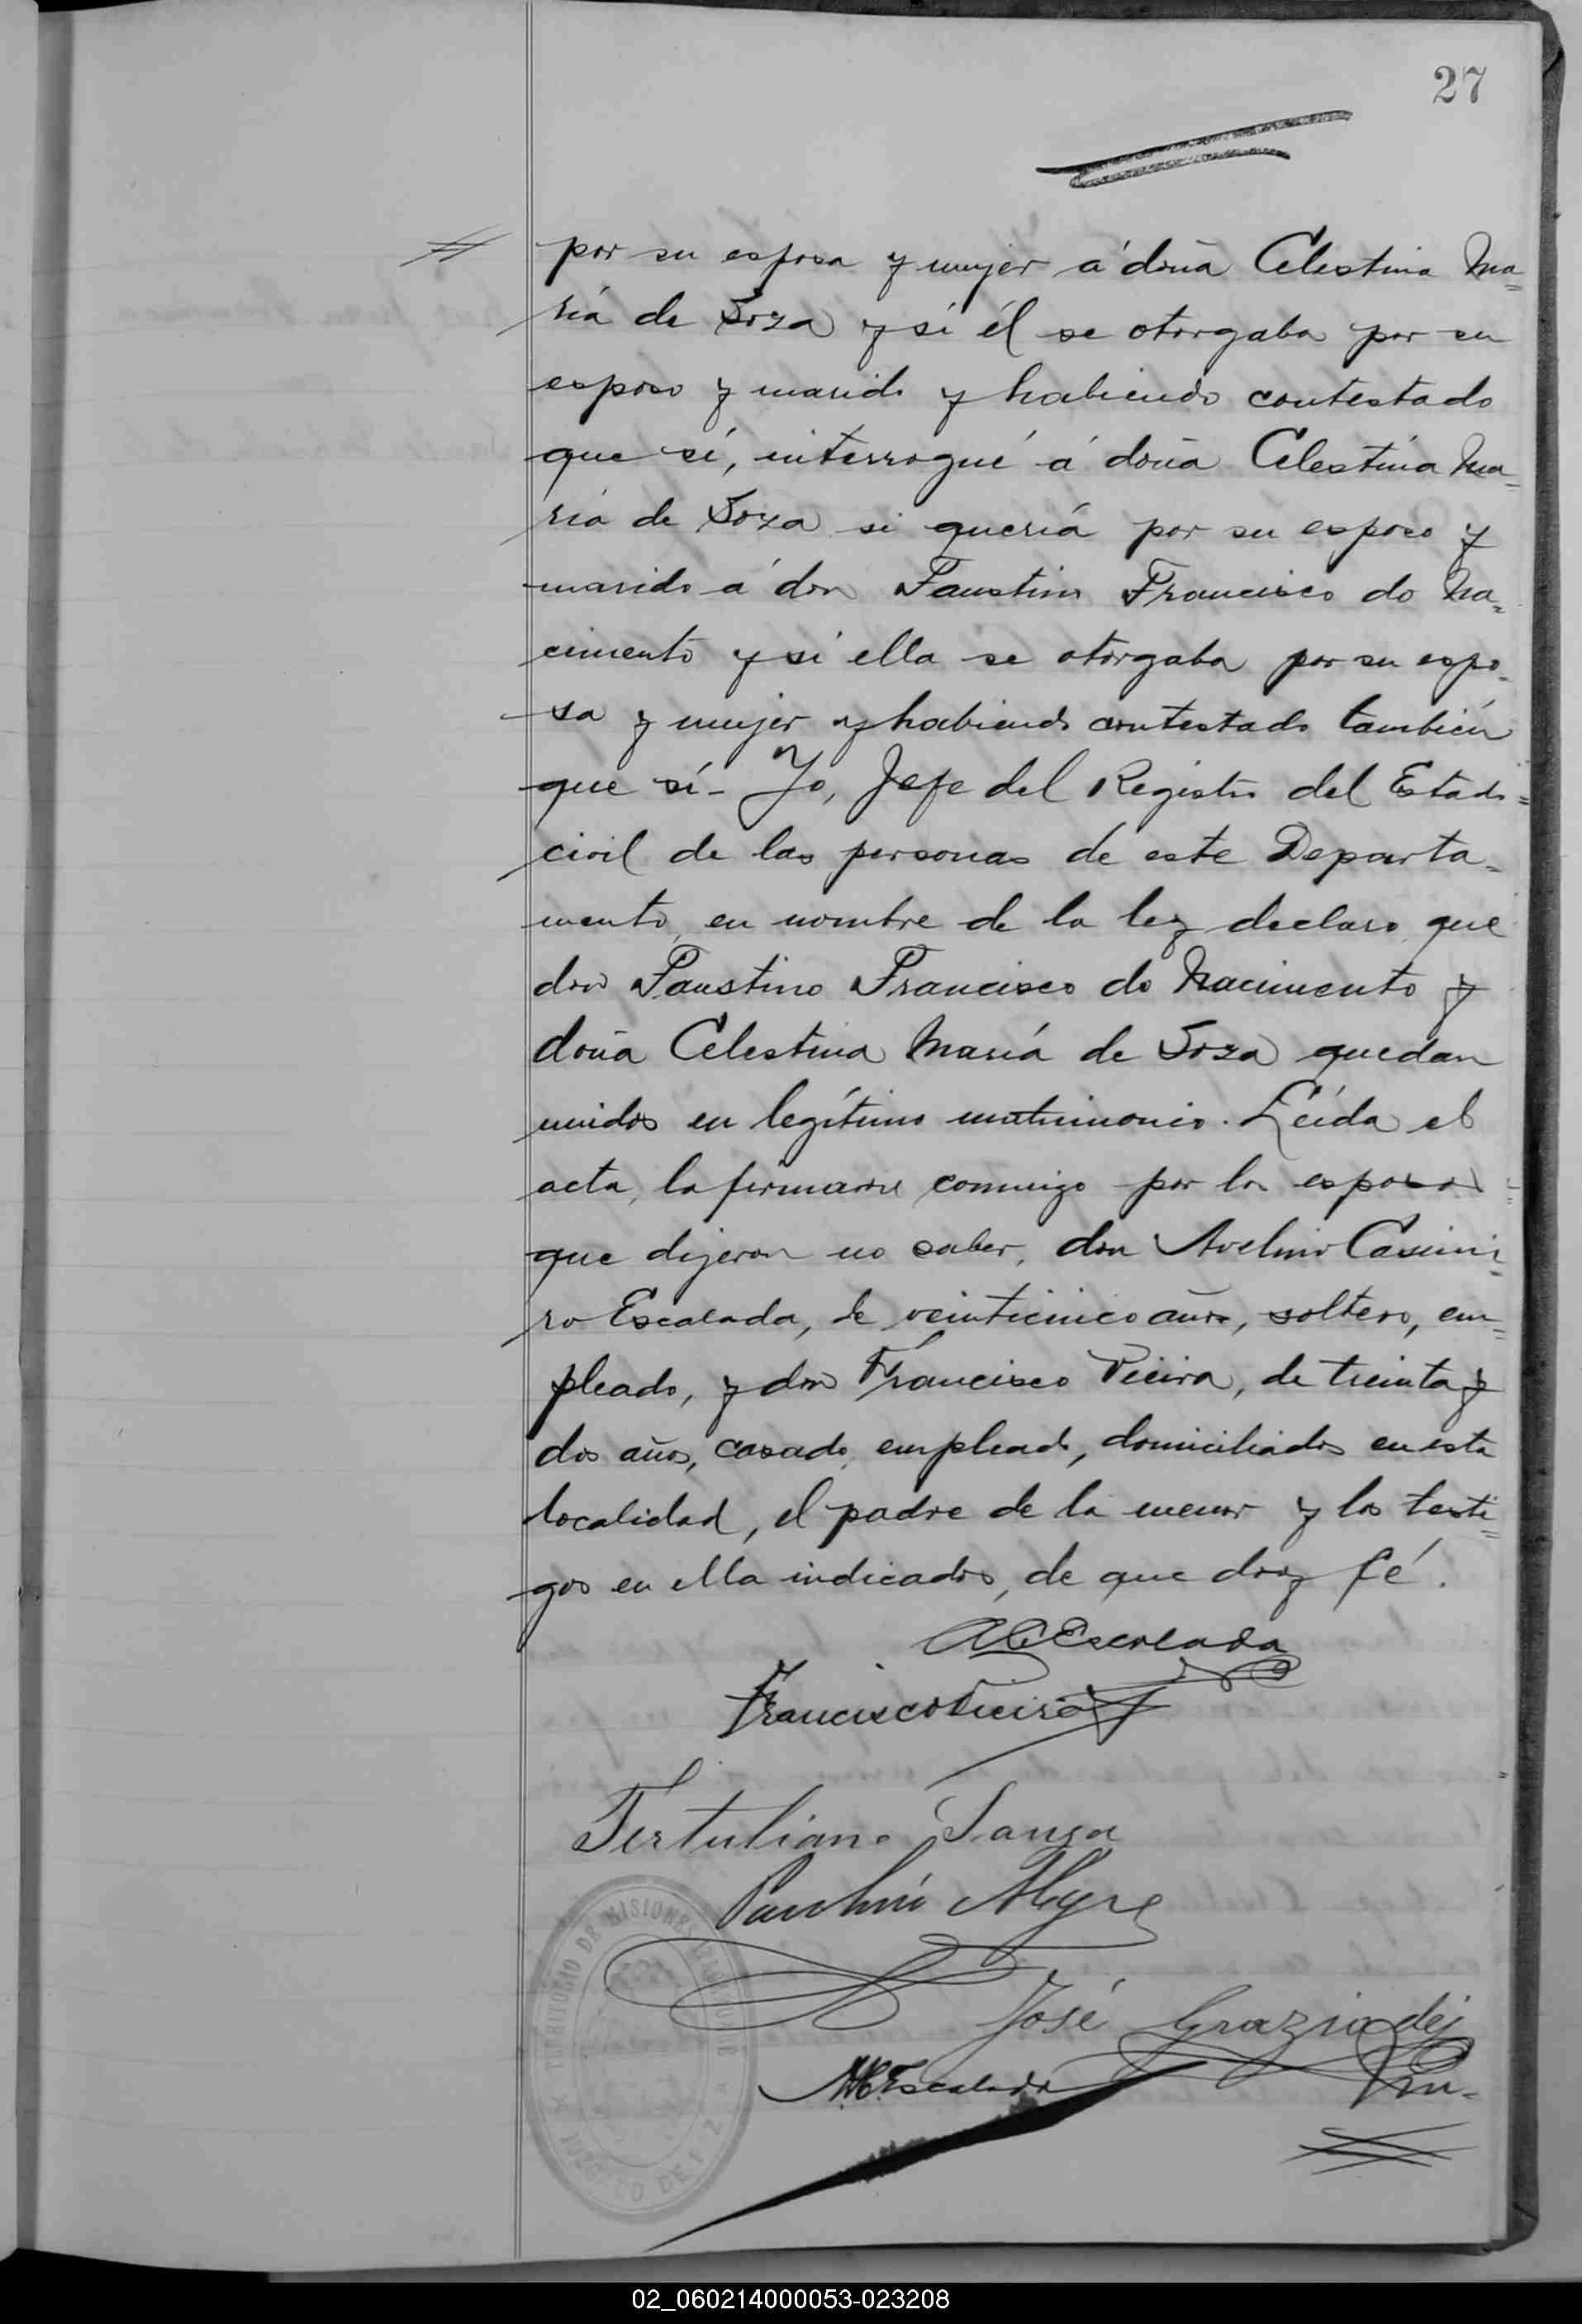 27
por su esposa y mujer á doña Celestina Ma=
ría de Soza y si él se otorgaba por su
esposo y marido y habiendo contestado
que sí, interrogué á doña Celestina Ma=
ría de Soza si quería por su esposo y
marido á don Faustino Francisco do Na=
cimento y si ella se otorgaba por su espo=
sa y mujer y habiendo contestado también
que sí - Yo, Jefe del Registro del Estado
civil de las personas de este Departa=
mento, en nombre de la ley declaro que
don Faustino Francisco do Nacimento y
doña Celestina María de Soza quedan
unidos en legítimo matrimonio. Leída el
acta, la firmaron conmigo por los esposos
que dijeron no saber, don Avelino Casimi=
ro Escalada, de veinticinco años, soltero, em=
pleado, y don Francisco Vieira, de treinta y
dos años, casado, empleado, domiciliados en esta
localidad, el padre de la menor y los testi=
gos en ella indicados, de que doy fé.
A C Escalada
Francisco Vieira
Tertuliano Sauza
José Graziadei
Escalada
TERRITORIO DE MISIONES
JUZGADO DE PAZ
02_060214000053-023208